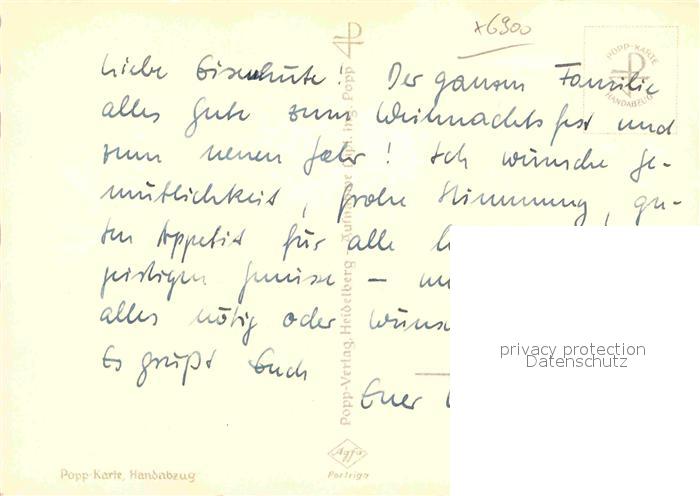 x6900
Liebe Eisenhüte! Der ganzen Familie
alles Gute zum Weihnachtsfest und
zum neuen Jahr! Ich wünsche Ge-
mütlichkeit, frohe Stimmung, gu-
ten Appetit für alle
geistigen Genüsse —
alles nötig oder
Es grüßt Euch
Euer
POPP-KARTE
HANDABZUG
Popp-Verlag, Heidelberg - Aufnahme Dipl. Ing. Popp
privacy protection
Datenschutz
Agfa
Portriga
Popp-Karte, Handabzug